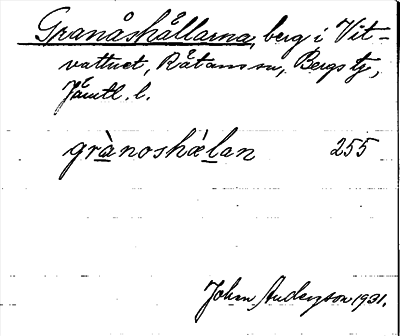 Granåshållarna, berg i Vit-
vattnet, Råtans sn, Bergs tg,
Jämtl. l.
grànoshæ̀lan 255
John Anderzon 1931.